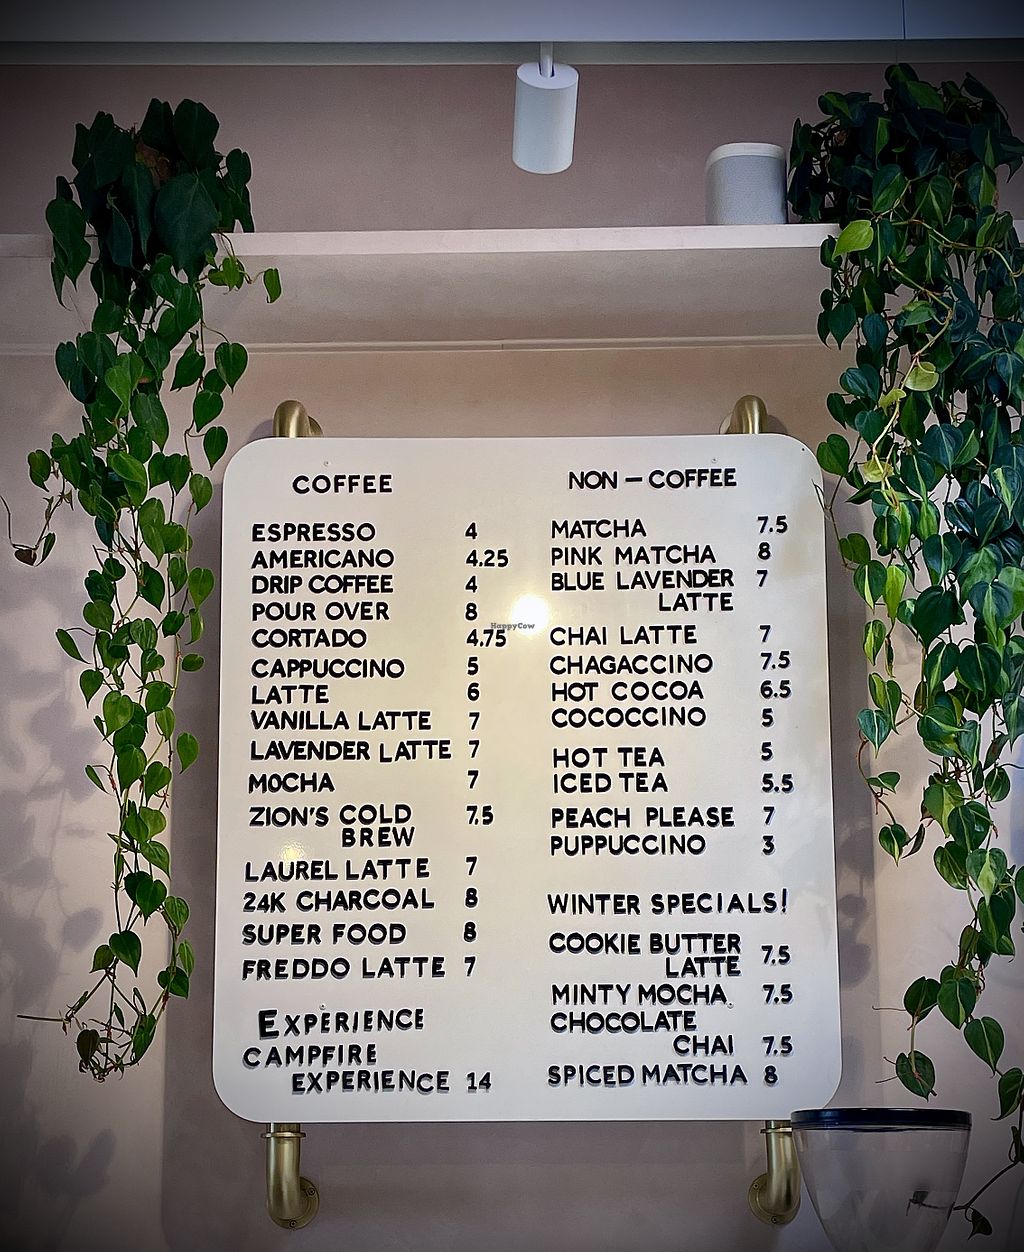 COFFEE
ESPRESSO 4
AMERICANO 4.25
DRIP COFFEE 4
POUR OVER 8
CORTADO 4.75
CAPPUCCINO 5
LATTE 6
VANILLA LATTE 7
LAVENDER LATTE 7
MOCHA 7
ZION'S COLD 7.5
BREW
LAUREL LATTE 7
24K CHARCOAL 8
SUPER FOOD 8
FREDDO LATTE 7
EXPERIENCE
CAMPFIRE
EXPERIENCE 14
NON-COFFEE
MATCHA 7.5
PINK MATCHA 8
BLUE LAVENDER 7
LATTE
CHAI LATTE 7
CHAGACCINO 7.5
HOT COCOA 6.5
COCOCCINO 5
HOT TEA 5
ICED TEA 5.5
PEACH PLEASE 7
PUPPUCCINO 3
WINTER SPECIALS!
COOKIE BUTTER
LATTE 7.5
MINTY MOCHA 7.5
CHOCOLATE
CHAI 7.5
SPICED MATCHA 8
HappyCow